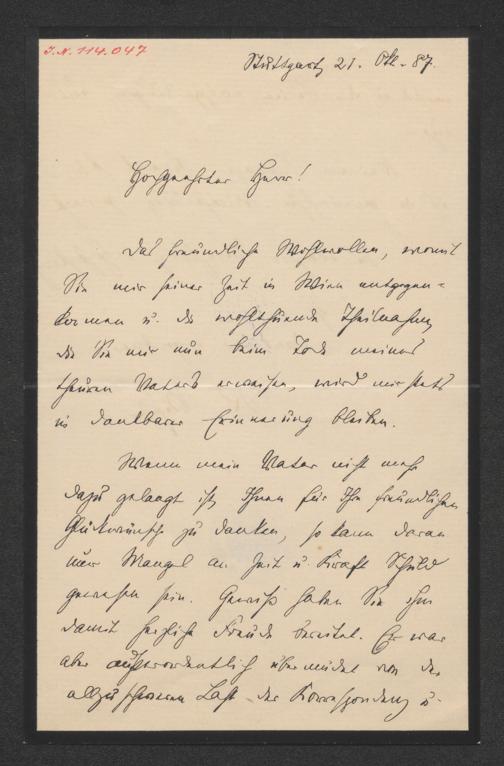 J.N. 114.047
Stuttgart 21. Okt. 87.
Hochgeehrter Herr!
Das freundliche Wohlwollen, womit
Sie mir seiner Zeit in Wien entgegen-
kamen u. die wohlthuende Theilnahme,
die Sie mir nun beim Tode meines
theuren Vaters erweisen, wird mir stets
in dankbarer Erinnerung bleiben.
Wenn mein Vater nicht mehr
dazu gelangt ist, Ihnen für Ihre freundlichen
Glückwünsche zu danken, so kann daran
nur Mangel an Zeit u. Kraft Schuld
gewesen sein. Gewiß haben Sie ihm
damit herzliche Freude bereitet. Er war
aber außerordentlich übermüdet von der
allzu schweren Last der Korrespondenz u.